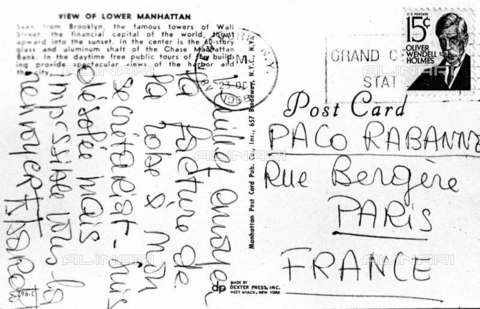 VIEW OF LOWER MANHATTAN
Seen from Brooklyn, the famous towers of Wall
Street, the financial capital of the world, mount
upward into the sunset. In the center is the 60-story
glass and aluminum shaft of the Chase Manhattan
Bank. In the daytime free public tours of the build-
ing provide spectacular views of the harbor and
the city.
la facture de
la Robe a mon
Secrétariat - suis
désolée mais
impossible vous la
Manhattan Post Card Pub. Co., Inc., 657 Broadway, N.Y.C., N.Y.
MADE BY
DEXTER PRESS, INC.
WEST NYACK, NEW YORK
dp
GRAND
STAT
U.S. POSTAGE
15¢
OLIVER
WENDELL
HOLMES
Post Card
PACO RABANNE
Rue Bergère
PARIS
FRANCE
ALINARI
ALINARI